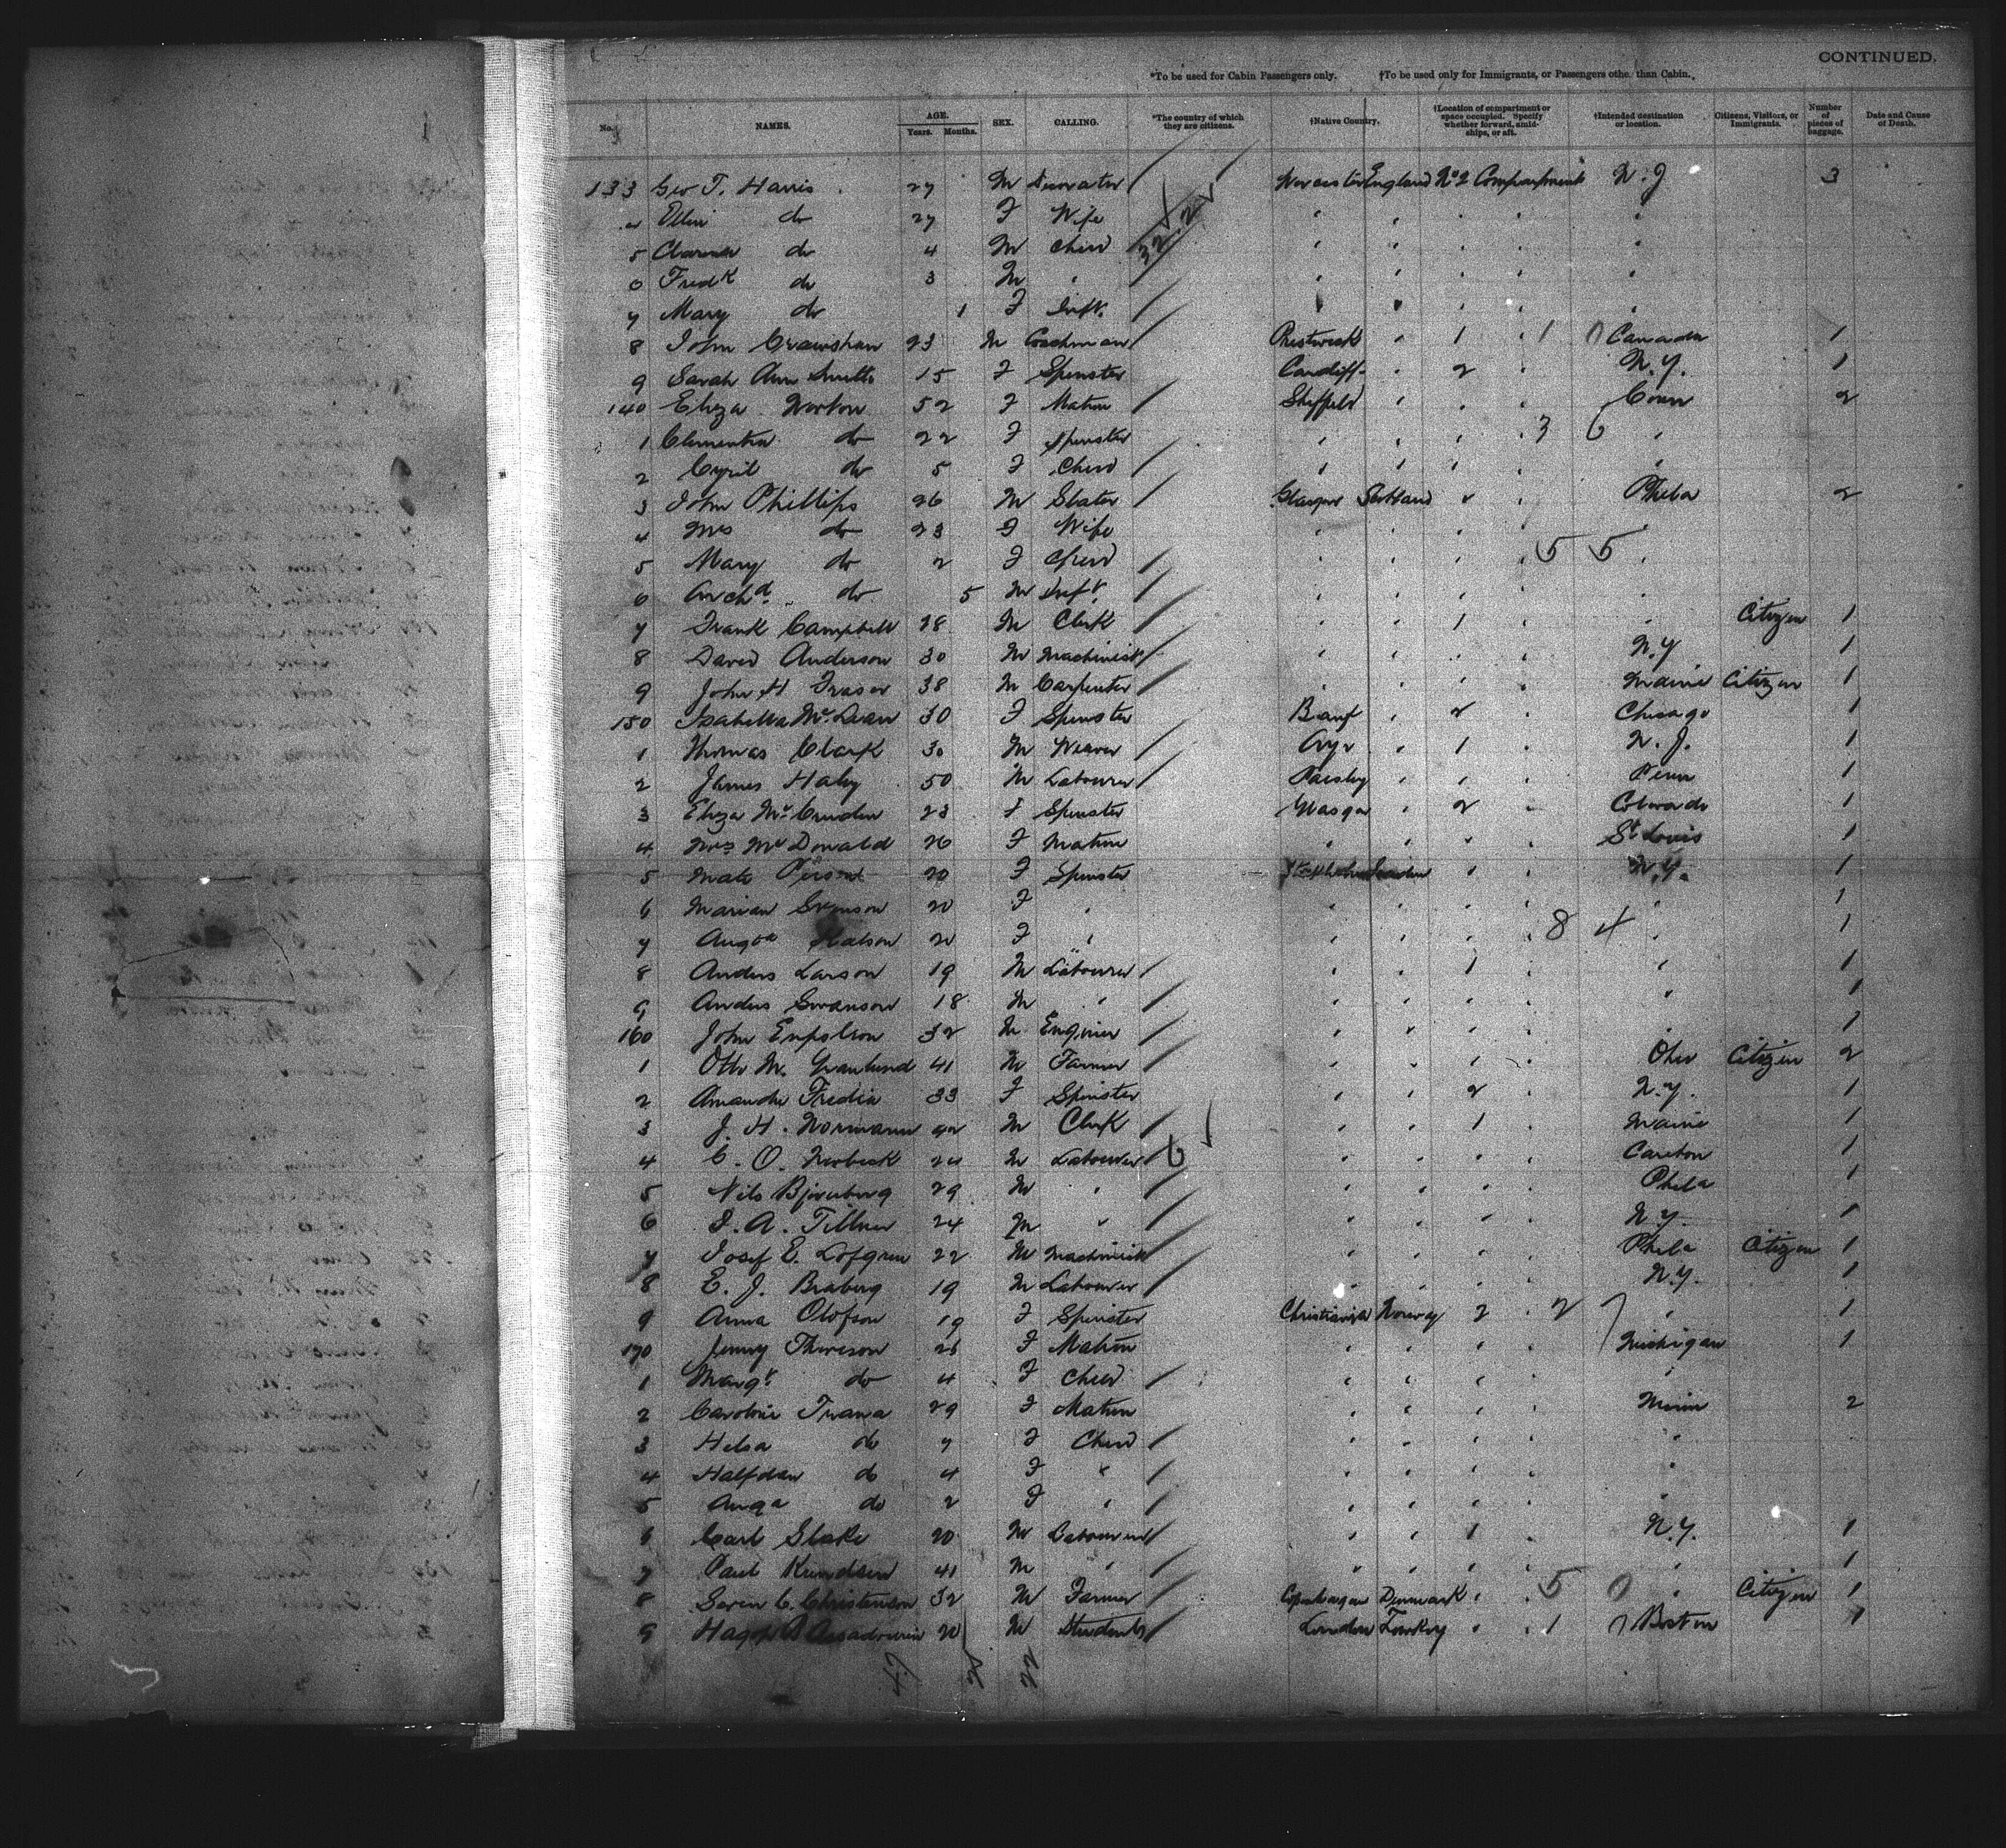 CONTINUED.
*To be used for Cabin Passengers only. †To be used only for Immigrants, or Passengers othe. than Cabin.
No. NAMES. AGE. Years. Months. SEX. CALLING. *The country of which they are citizens. †Native Country. †Location of compartment or space occupied. Specify whether forward, amidships, or aft. †Intended destination or location. Citizens, Visitors, or Immigrants. Number of pieces of baggage. Date and Cause of Death.
133 Geo T. Harris 27 M Decorator Worcester England No 2 Compartment N. J 3
4 Ellen do 27 F Wife
5 Clarence do 4 M Child
6 Fredk do 3 M "
7 Mary do 1 F Inft.
8 John Crawshaw 23 M Coachman Prestwick " 1 Canada 1
9 Sarah Ann Smith 15 F Spinster Cardiff " 2 N.Y. 1
140 Eliza Norton 52 F Matron Sheffield " " Conn 2
1 Clementina do 22 F Spinster
2 Cyril do 5 F Child
3 John Phillips 26 M Slater Glasgow Scotland " Phila 2
4 Mrs do 23 F Wife
5 Mary do 2 F Child
6 Archd. do 5 M Inft
7 Frank Campbell 28 M Clerk " " 1 " Citizen 1
8 David Anderson 30 M Machinist " " " N.Y 1
9 John H Fraser 38 M Carpenter " " " Maine Citizen 1
150 Isabella McLean 30 F Spinster Banf " 2 Chicago 1
1 Thomas Clark 30 M Weaver Ayr " 1 N. J. 1
2 James Haley 50 M Labourer Paisley " " Penn 1
3 Eliza Mc 23 F Spinster Glasgow " 2 Colorado 1
4 Mrs McDonald 26 F Matron " " " St Louis 1
5 20 F Spinster Stockholm Sweden " N.Y. 1
6 Marian Svenson 20 F " 1
7 Augta 20 F " 1
8 Anders Larson 19 M Labourer " " 1 " 1
9 Anders Swanson 18 M " 1
160 John 32 M Engineer 1
1 Otto M. Granlund 41 M Farmer " " " Ohio Citizen 2
2 Amanda Fredin 33 F Spinster " " 2 N.Y. 1
3 J. H. Normann 42 M Clerk " " 1 Maine 1
4 C. O. Norbeck 24 M Labourer 1
5 Nils Bjornberg 29 M " Phila 1
6 24 M " N.Y. 1
7 Josef E. Lofgren 22 M Machinist " " " Phila Citizen 1
8 E. J. Braberg 19 M Labourer N.Y. 1
9 Anna Olofson 19 F Spinster Christiania Norway 2 " 1
170 Jenny 26 F Matron Michigan 1
1 Margt. do 4 F Child
2 Caroline 29 F Matron Minn 2
3 do 7 F Child
4 Halfdan do 4 F "
5 Auga do 2 F "
6 Carl 20 M Labourer " " 1 N.Y. 1
7 Paul Knudsen 41 M " 1
8 Soren C. Christenson 32 M Farmer Copenhagen Denmark " Citizen 1
9 Hagop 20 M Student London Turkey " Boston 1